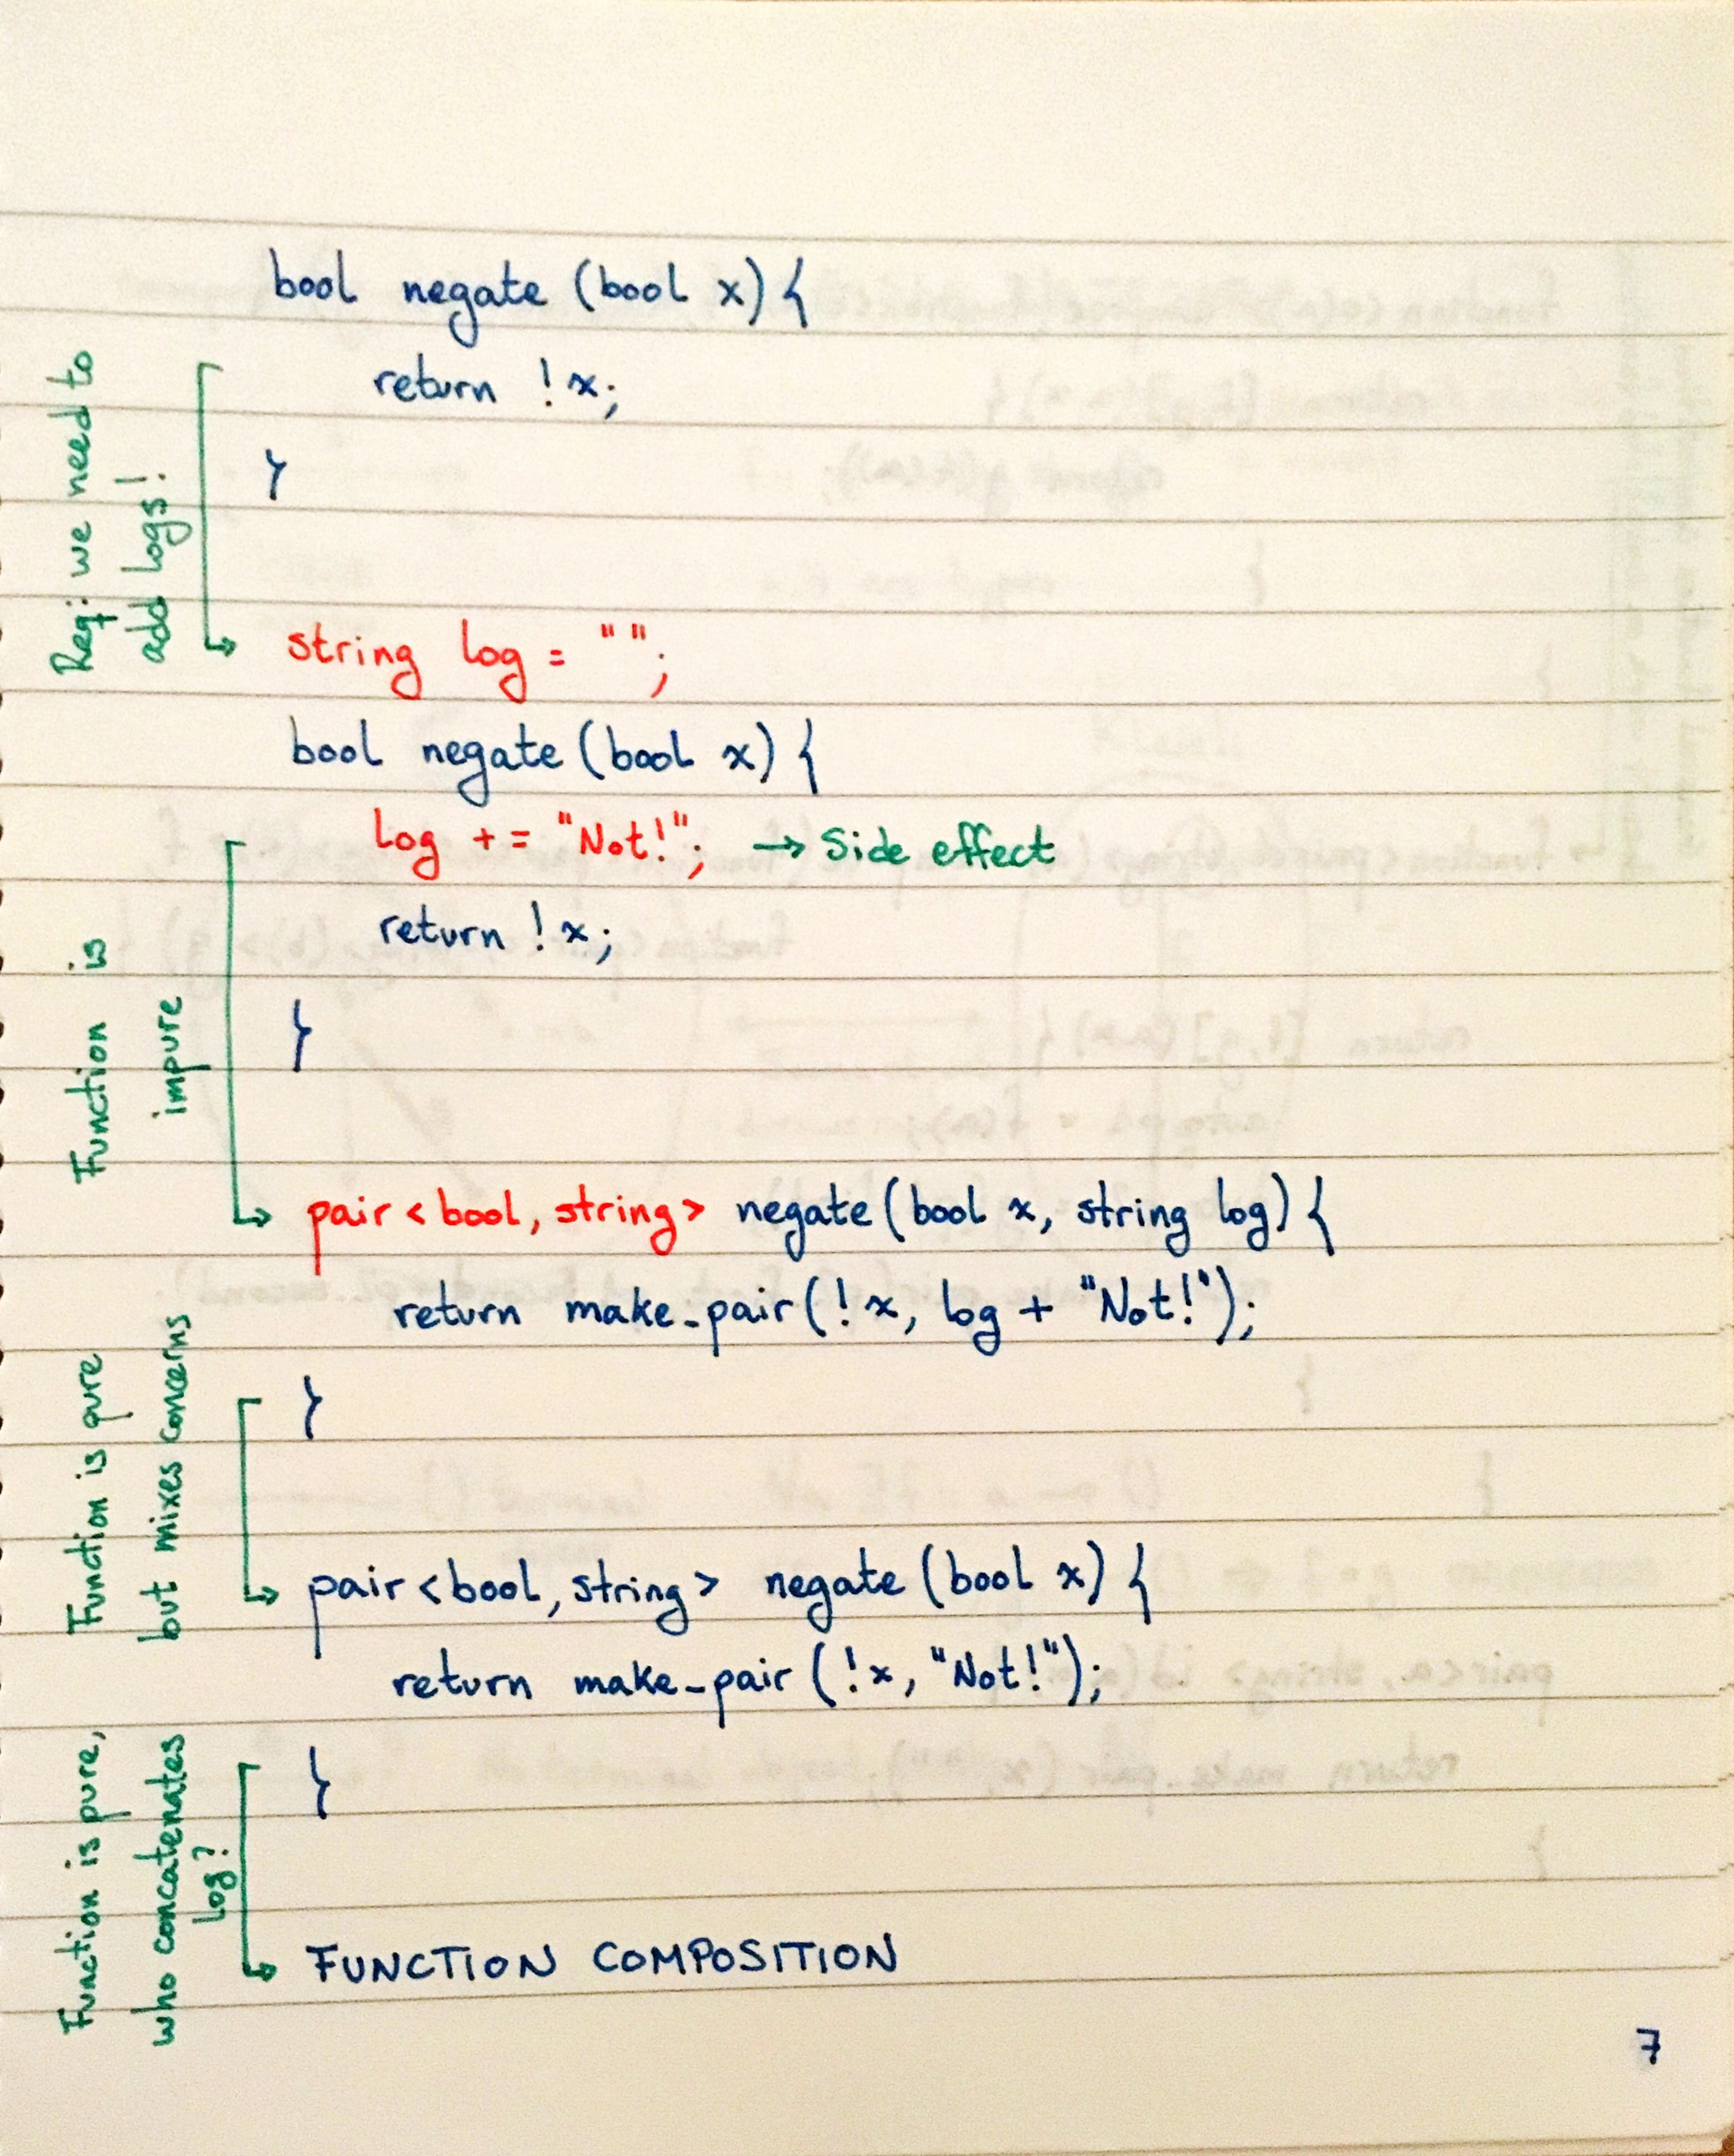 bool negate (bool x) {
return !x;
}
Req: we need to
add logs!
string log = "";
bool negate (bool x) {
log += "Not!"; → Side effect
return !x;
}
Function is
impure
pair<bool, string> negate (bool x, string log) {
return make_pair(!x, log + "Not!");
}
Function is pure
but mixes concerns
pair<bool, string> negate (bool x) {
return make_pair (!x, "Not!");
}
Function is pure,
who concatenates
log?
FUNCTION COMPOSITION
7